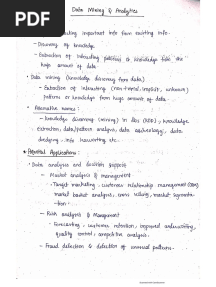 PDF
Data Mining & Analytics
interesting important info from existing info.
– Discovery of knowledge
– Extraction of interesting patterns or knowledge from the
huge amount of data
• Data mining (knowledge discovery from data)
– Extraction of interesting (non-trivial, implicit, unknown)
patterns or knowledge from huge amount of data.
• Alternative names:
– Knowledge discovery (mining) in dbs (KDD), knowledge
Extraction, data/pattern analysis, data archeology, data
dredging, info harvesting etc.
Potential Applications:
• Data analysis and decision support
– Market analysis & management
• Target marketing, customer relationship management (CRM)
market basket analysis, cross selling, market segmenta-
tion.
– Risk analysis & Management
• Forecasting, customer retention, improved underwriting,
quality control, competitive analysis.
– Fraud detection & detection of unusual patterns.